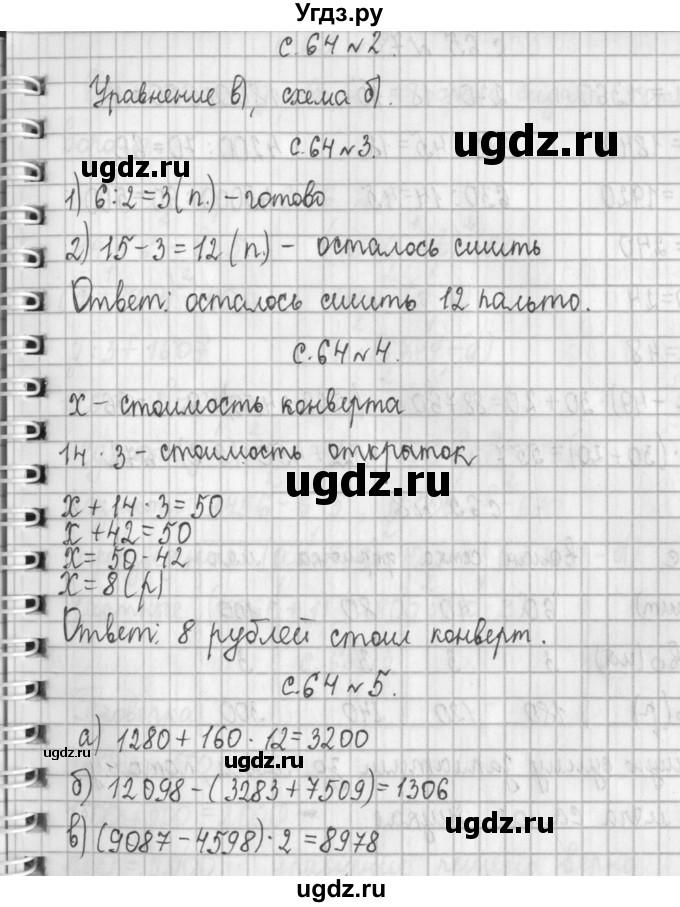 Угдз.ру
с.64 №2.
Уравнение в), схема б).
ugdz.ru
ugdz.ru
с.64 №3.
1) 6:2=3(п.) – готово
ugdz.ru
2) 15–3=12(п.) – осталось сшить
Ответ: осталось сшить 12 пальто.
ugdz.ru
с.64 №4.
х – стоимость конверта
ugdz.ru
14·3 – стоимость открыток
ugdz.ru
х + 14·3=50
х +42=50
х= 50-42
ugdz.ru
х=8(р)
Ответ: 8 рублей стоил конверт.
ugdz.ru
с.64 №5.
ugdz.ru
а) 1280+160·12=3200
ugdz.ru
б) 12098–(3283+7509)=1306
в) (9087–4598)·2=8978
ugdz.ru
ugdz.ru
ugdz.ru